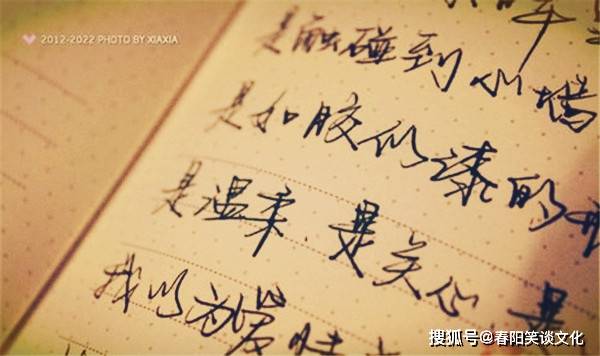 2012-2022 PHOTO BY XIAXIA
是触碰到小
是如胶似漆的
是温柔、是关心 是
我以为爱
搜狐号@春阳笑谈文化